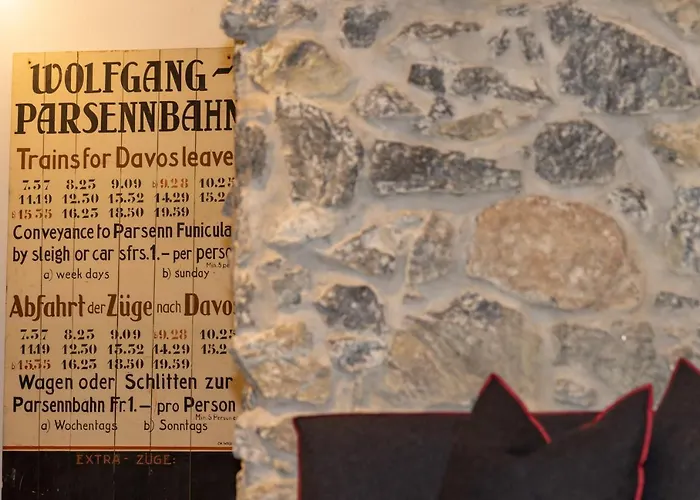 WOLFGANG-
PARSENNBAHN
Trains for Davos leave
7.37 8.23 9.09 b 9.28 10.25
11.19 12.30 13.32 14.29 15.2
15.35 16.23 18.30 19.39
Conveyance to Parsenn Funicula
by sleigh or car sfrs.1.- per perso
Min. 5 pe
a) week days b) sunday
Abfahrt der Züge nach Davos
7.37 8.23 9.09 9.28 10.25
11.19 12.30 13.32 14.29 15.2
15.35 16.23 18.30 19.39
Wagen oder Schlitten zur
Parsennbahn Fr.1.- pro Person
Min. 5 Persone
a) Wochentags b) Sonntags
EXTRA-ZÜGE: